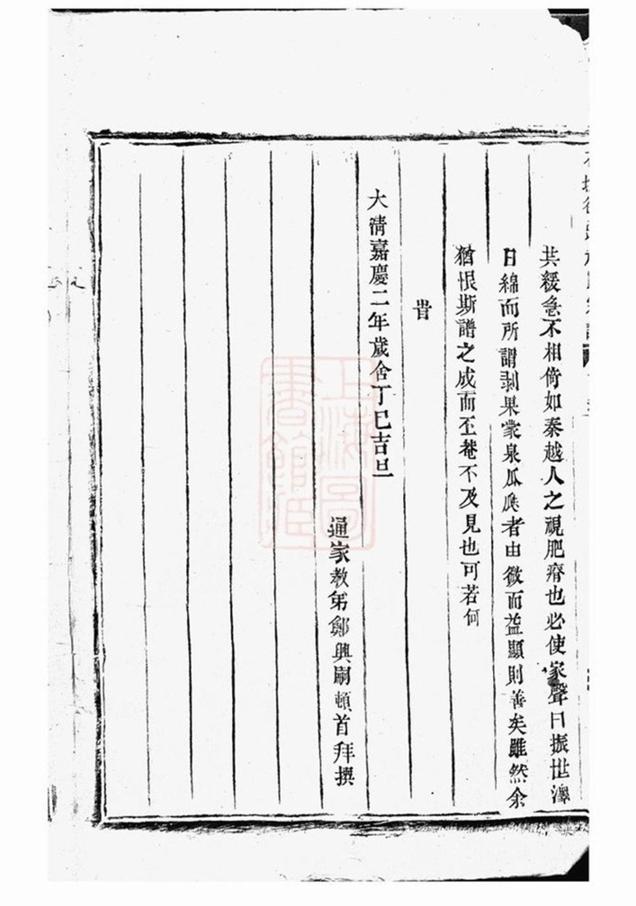 共緩急不相倚如秦越人之視肥瘠也必使家聲日振世澤
日綿而所謂剥果蒙泉瓜瓞者由微而益顯則善矣雖然余
猶恨斯譜之成而丕菴不及見也可若何
旹
大清嘉慶二年歲舍丁巳吉旦
通家教弟鄭興嗣頓首拜撰
上海圖書館藏